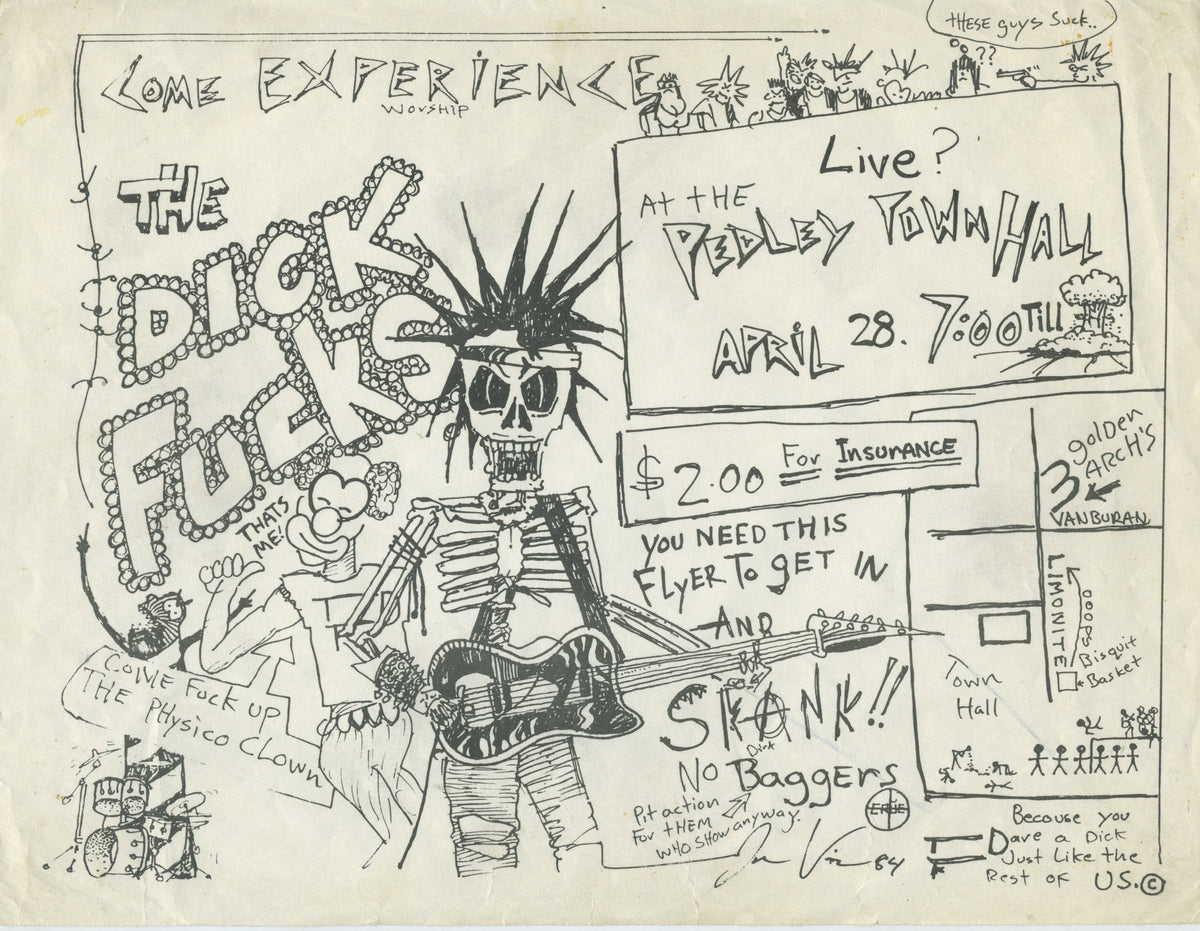 THESE guys Suck..
??
COME EXPERIENCE
WORSHIP
THE
DICK
FUCKS
Live?
At tHE
PEDLEY TOWN HALL
APRIL 28. 7:00 Till
$2.00 For INSURANCE
YOU NEED THIS
FLYER To gET IN
AND
SKANK!!
NO Dirt BAGGERS
Pit action
For tHEM
WHO SHOW anyway.
84
THATS
ME!
COME Fuck up
THE PHysico Clown
golDEn
ARCH'S
VANBURAN
LIMONITE
OOOPS
Bisquit
Basket
Town
Hall
Becouse you
Dave a Dick
Just Like the
Rest of US.©